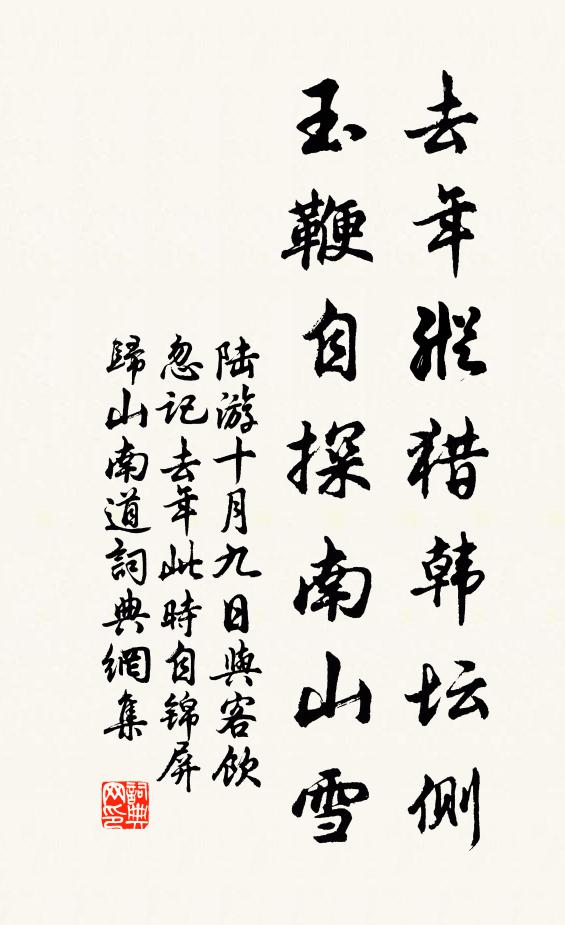 去年縱猎韩坛侧
玉鞭自探南山雪
陆游十月九日與客飲
忽记去年此時自锦屏
歸山南道詞典網集
詞典网印